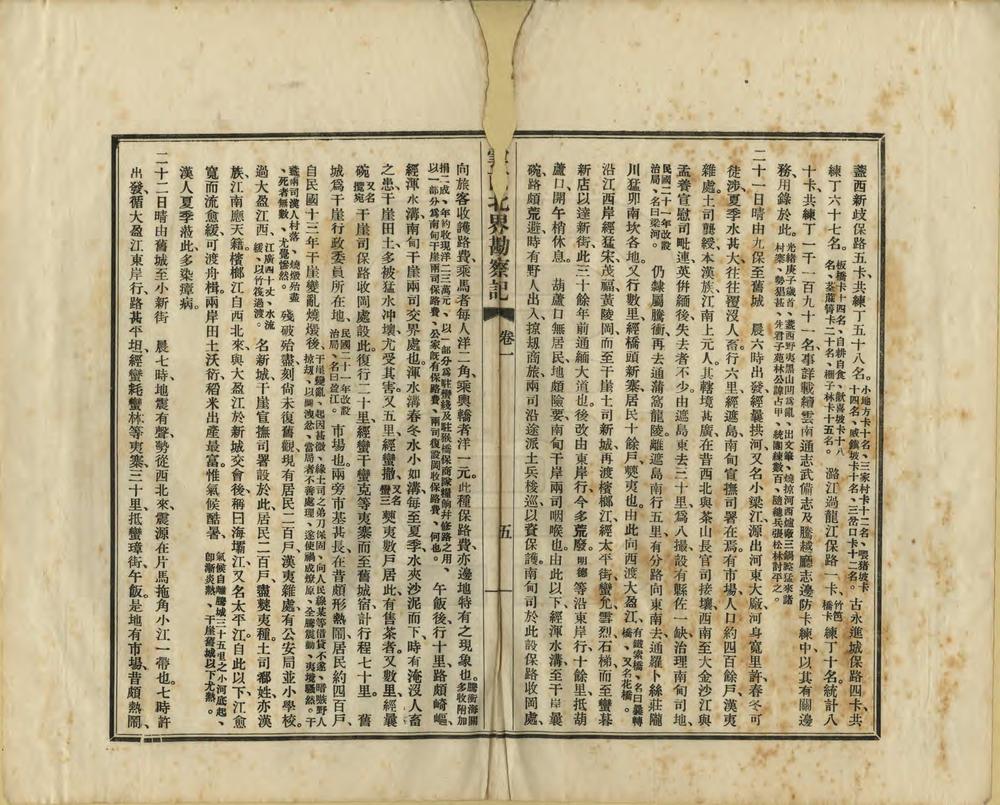 盞西新歧保路五卡共練丁五十八名小地方卡十名、三家村卡十二名、壩豬坡卡十四名、城鐵坡卡十名、三岔口卡十二名。古永進城保路四卡共
練丁六十七名板橋卡十四名、自耕自食、猷喜坡卡十八名、茶蘿箐卡二十名、棚子林卡十五名。潞江渦龍江保路一卡竹笆橋卡練丁十名統計八
十卡共練丁一千一百九十一名事詳載續雲南通志武備志及騰越廳志邊防卡練中以其有關邊
務用錄於此。光緒庚子歲首、盞西野夷黑山門為亂、出文筆、燒掠河西爐廠三鍋跨猛來諸村寨、勢猖甚、先君子苑林公諱占甲、統團練數百、隨總兵張松林討平之。
二十一日晴由九保至舊城　晨六時出發經曩拱河又名小梁江源出河東大廠河身寬里許春冬可
徒涉夏季水甚大往往覆沒人畜行六里經遮島南甸宣撫司署在焉有市場人口約四百餘戶漢夷
雜處土司龔綬本漢族江南上元人其轄境甚廣在昔西北與茶山長官司接壤西南至大金沙江與
孟養宣慰司毗連英併緬後失去者不少由遮島東去二十里為八撮設有縣佐一缺治理南甸司地、
民國二十一年改設治局、名曰梁河。仍隸屬騰衝再去通蒲窩龍陵離遮島南行五里有分路向東南去通羅卜絲莊隴
川猛卯南坎各地又行數里經橋頭新寨居民十餘戶僰夷也由此向西渡大盈江、有鐵索橋、名曰曩轉橋、又名花橋。
沿江西岸經猛宋茂福黃陵岡而至干崖土司新城再渡檳榔江經太平街蠻允雪烈石梯而至蠻暮
新店以達新街此三十餘年前通緬大道也後改由東岸行今多荒廢明德等沿東岸行十餘里抵葫
蘆口開午梢休息　葫蘆口無居民地頗險要南甸干崖兩司咽喉也由此以下經渾水溝至干崖曩
碗路頗荒避時有野人出入掠刼商旅兩司沿途派土兵梭巡以資保護南甸司於此設保路收岡處、
北界勘察記　卷一　五
向旅客收護路費乘馬者每人洋二角乘輿轎者洋一元此種保路費亦邊地特有之現象也騰衝海關多收附加
捐二成、年約收現洋二三萬元、以一部分為駐蠻綫及駐猴橋保商隊糧餉幷修路之用、以一部分為南甸干崖兩司保路費、公家既有保路費、兩司復設岡收保路費、何也。午飯後行十里路頗崎嶇
經渾水溝南甸干崖兩司交界處也渾水溝春冬水小如溝每至夏季水夾沙泥而下時有淹沒人畜
之患干崖田土多被猛水沖壞尤受其害又五里經蠻撒又名蠻三僰夷數戶居此有售茶者又數里經曩
碗又名攬宛干崖司保路收岡處設此復行二十里經蠻干蠻克等夷寨而至舊城宿計行程七十里。　舊
城為干崖行政委員所在地、民國二十一年改設治局、名曰盈江。市場也兩旁市基甚長在昔頗形熱鬧居民約四百戶
自民國十三年干崖變亂燒燬後、干崖變亂、起因甚微、緣土司之弟刀保固、向人民線某等借貸不遂、暗嗾野人掠刼、以圖洩忿、當局者不善處理、遂使禍成燎原、全騰震動、夷境騷然。干
盞兩司漢人村落、燒燬殆盡、死者無數、尤覺慘然。殘破殆盡刻尙未復舊觀現有居民二百戶漢夷雜處有公安局並小學校。
過大盈江西、江廣四十丈、水流緩、以竹筏過渡。名新城干崖宣撫司署設於此居民二百戶盡僰夷種土司郗姓亦漢
族江南應天籍檳榔江自西北來與大盈江於新城交會後稱曰海壩江又名太平江自此以下江愈
寬而流愈緩可渡舟楫兩岸田土沃衍稻米出產最富惟氣候酷暑、氣候自離騰城三十五里之小河底起、卽漸炎熱、干崖舊城以下尤熱。
漢人夏季涖此多染瘴病。
二十二日晴由舊城至小新街　晨七時地震有聲勢從西北來震源在片馬拖角小江一帶也七時許
出發循大盈江東岸行路甚平坦經蠻蚌蠻林等夷寨三十里抵蠻璋街午飯是地有市場昔頗熱鬧、